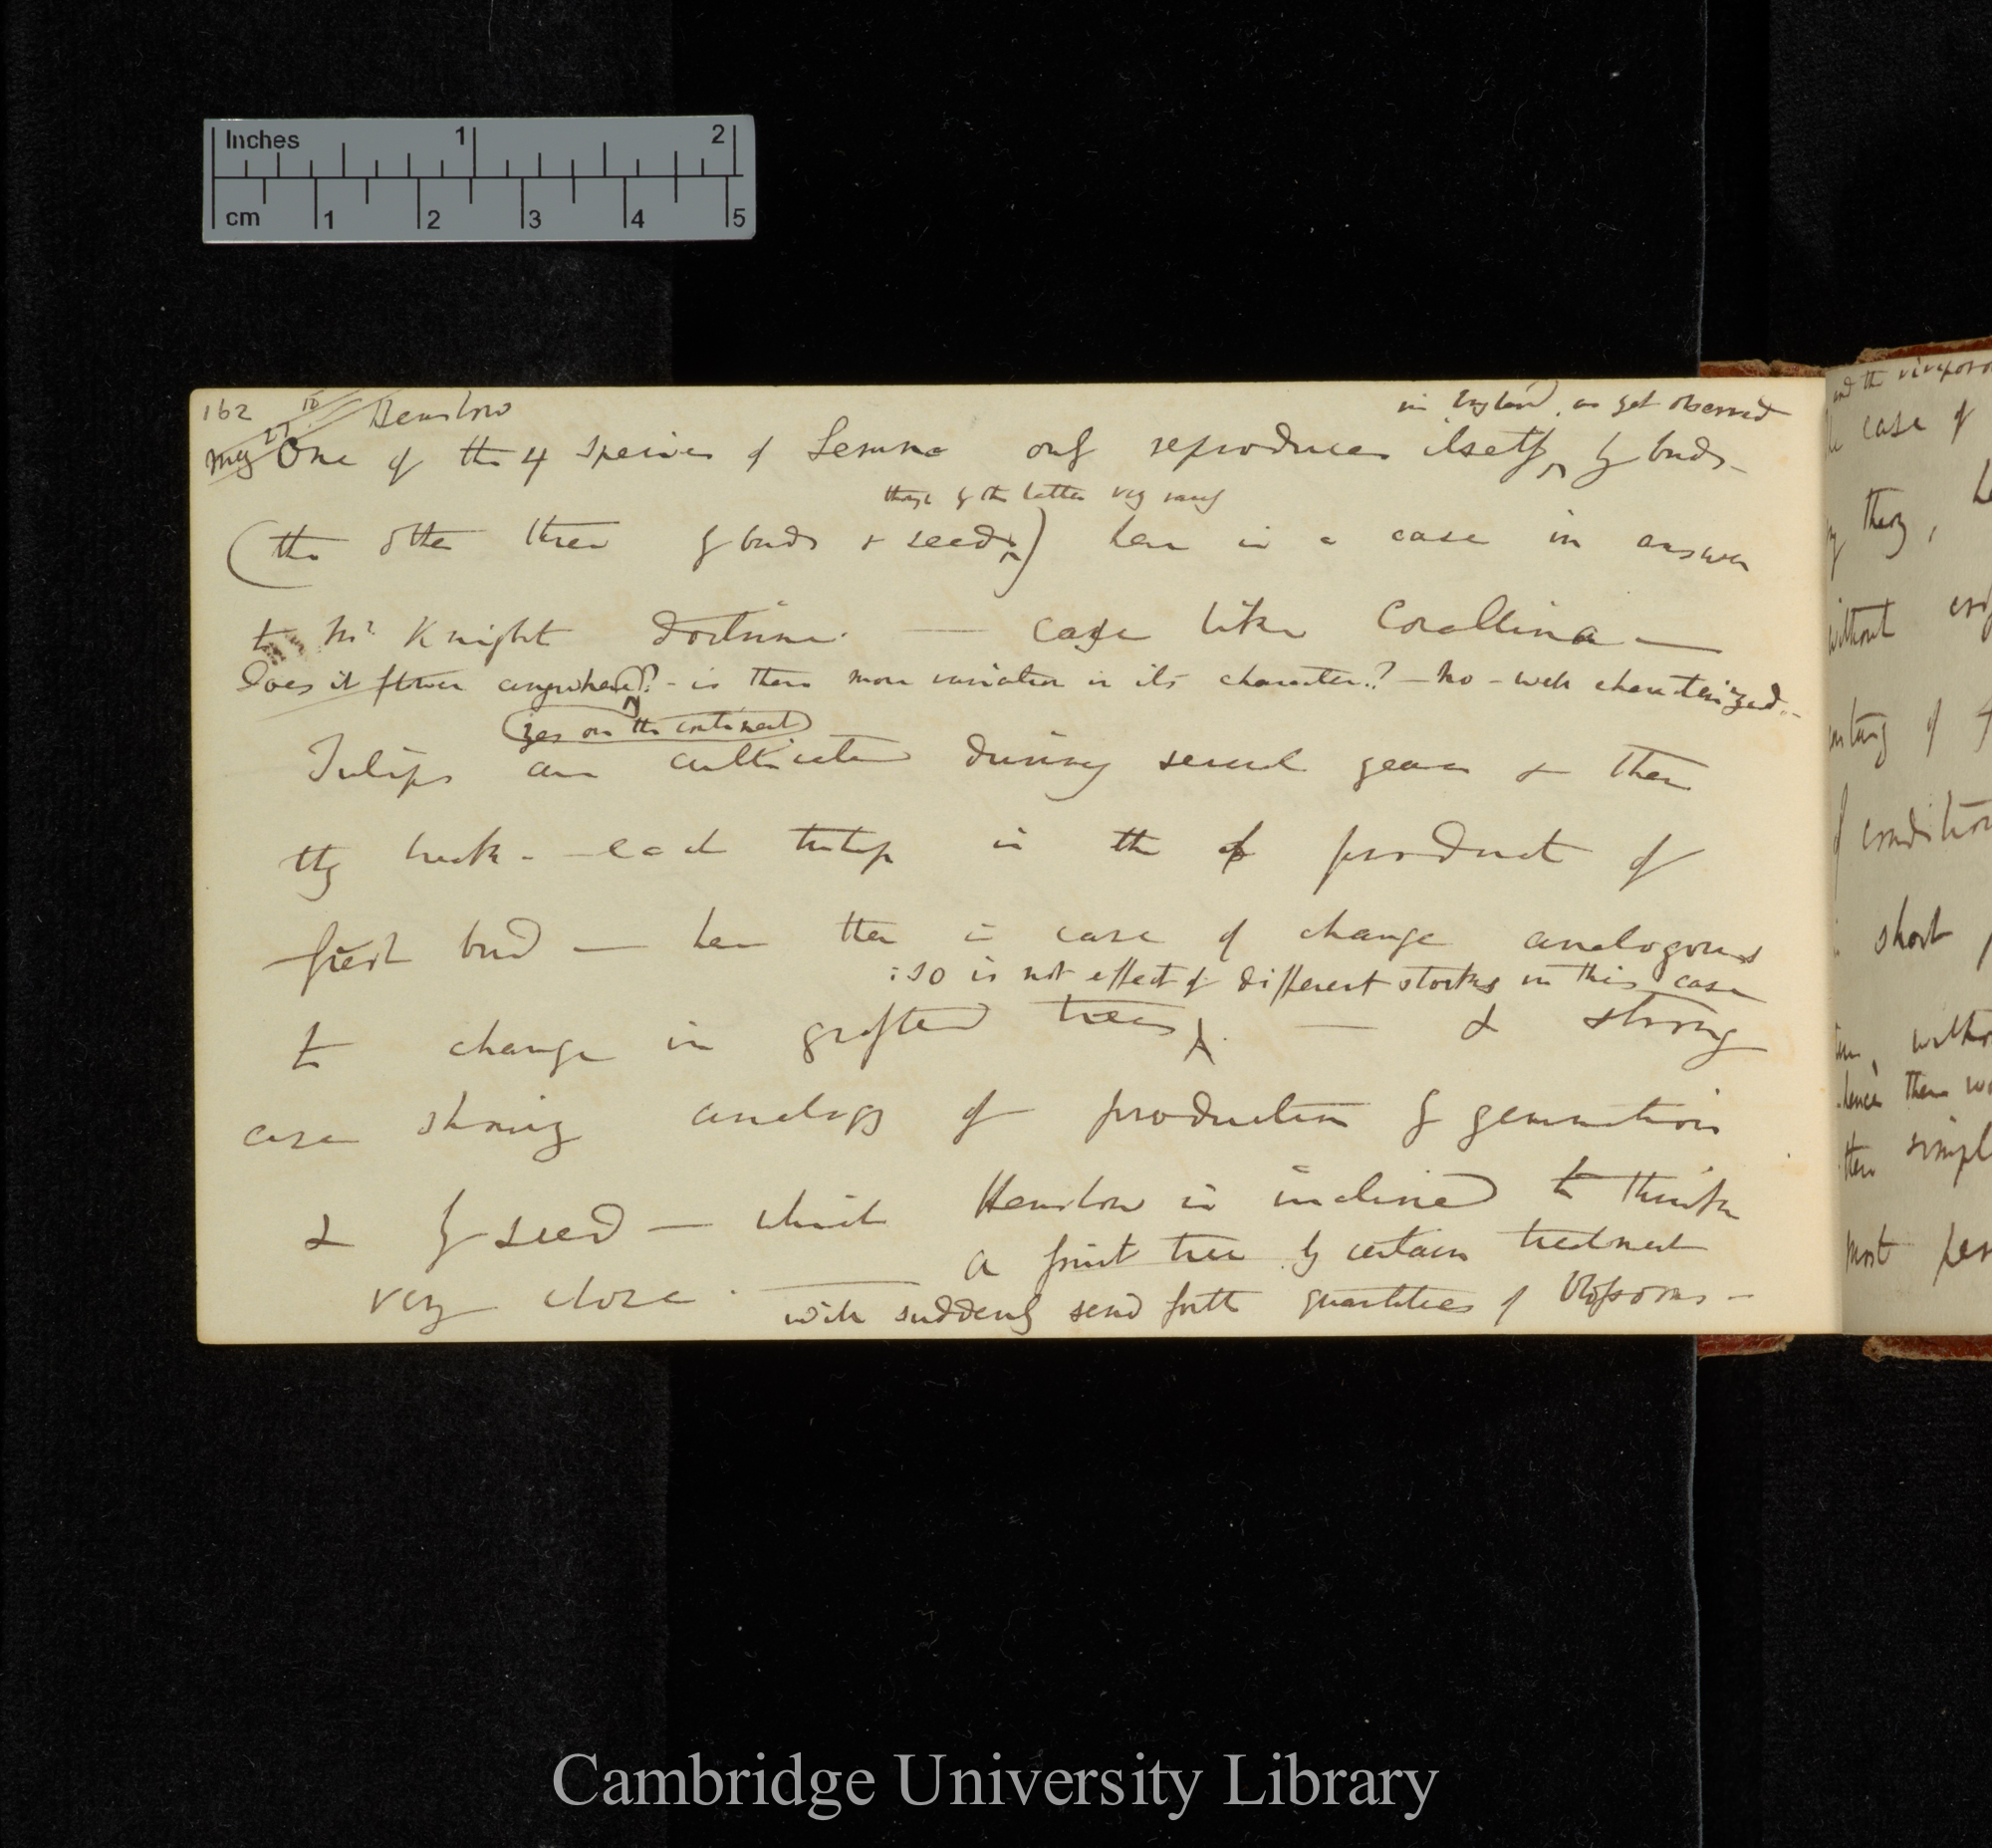 Inches 1 2
cm 1 2 3 4 5
162 Henslow
in England, as yet observed
One of the 4 species of Lemna only reproduces itself by buds.—
though by the latter very rarely
(the other three by buds & seeds) here is a case in answer
to Mr Knight doctrine. — case like Corallina —
Does it flower anywhere? - is there more variation in its character.? — No - well characterized.-
(yes on the continent)
Tulips are cultivated during several years & then
they break. — each tulip is the product of
fresh bud — here then is case of change analogous
: so is not effect of different stocks in this case
to change in grafted trees. — & strong
case showing analogy of production by gemmation
& by seed — which Henslow is inclined to think
very close. —
A fruit tree by certain treatment
will suddenly send forth quantities of blossoms. —
case of
my theory,
without
of condition
short
hence there
then simpl
most per
Cambridge University Library